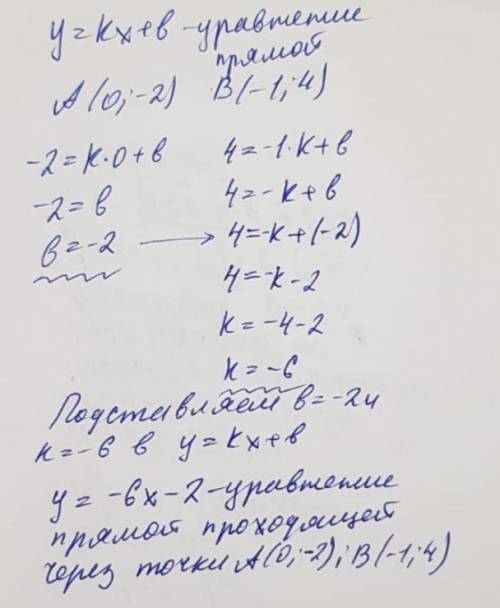 y=kx+b-уравнение
прямой
A(0;-2) B(-1;4)
-2=k·0+b
-2=b
b=-2
4=-1·k+b
4=-k+b
4=-k+(-2)
4=-k-2
k=-4-2
k=-6
Подставляем b=-2 и
k=-6 в y=kx+b
y=-6x-2-уравнение
прямой проходящей
через точки A(0;-2); B(-1;4)